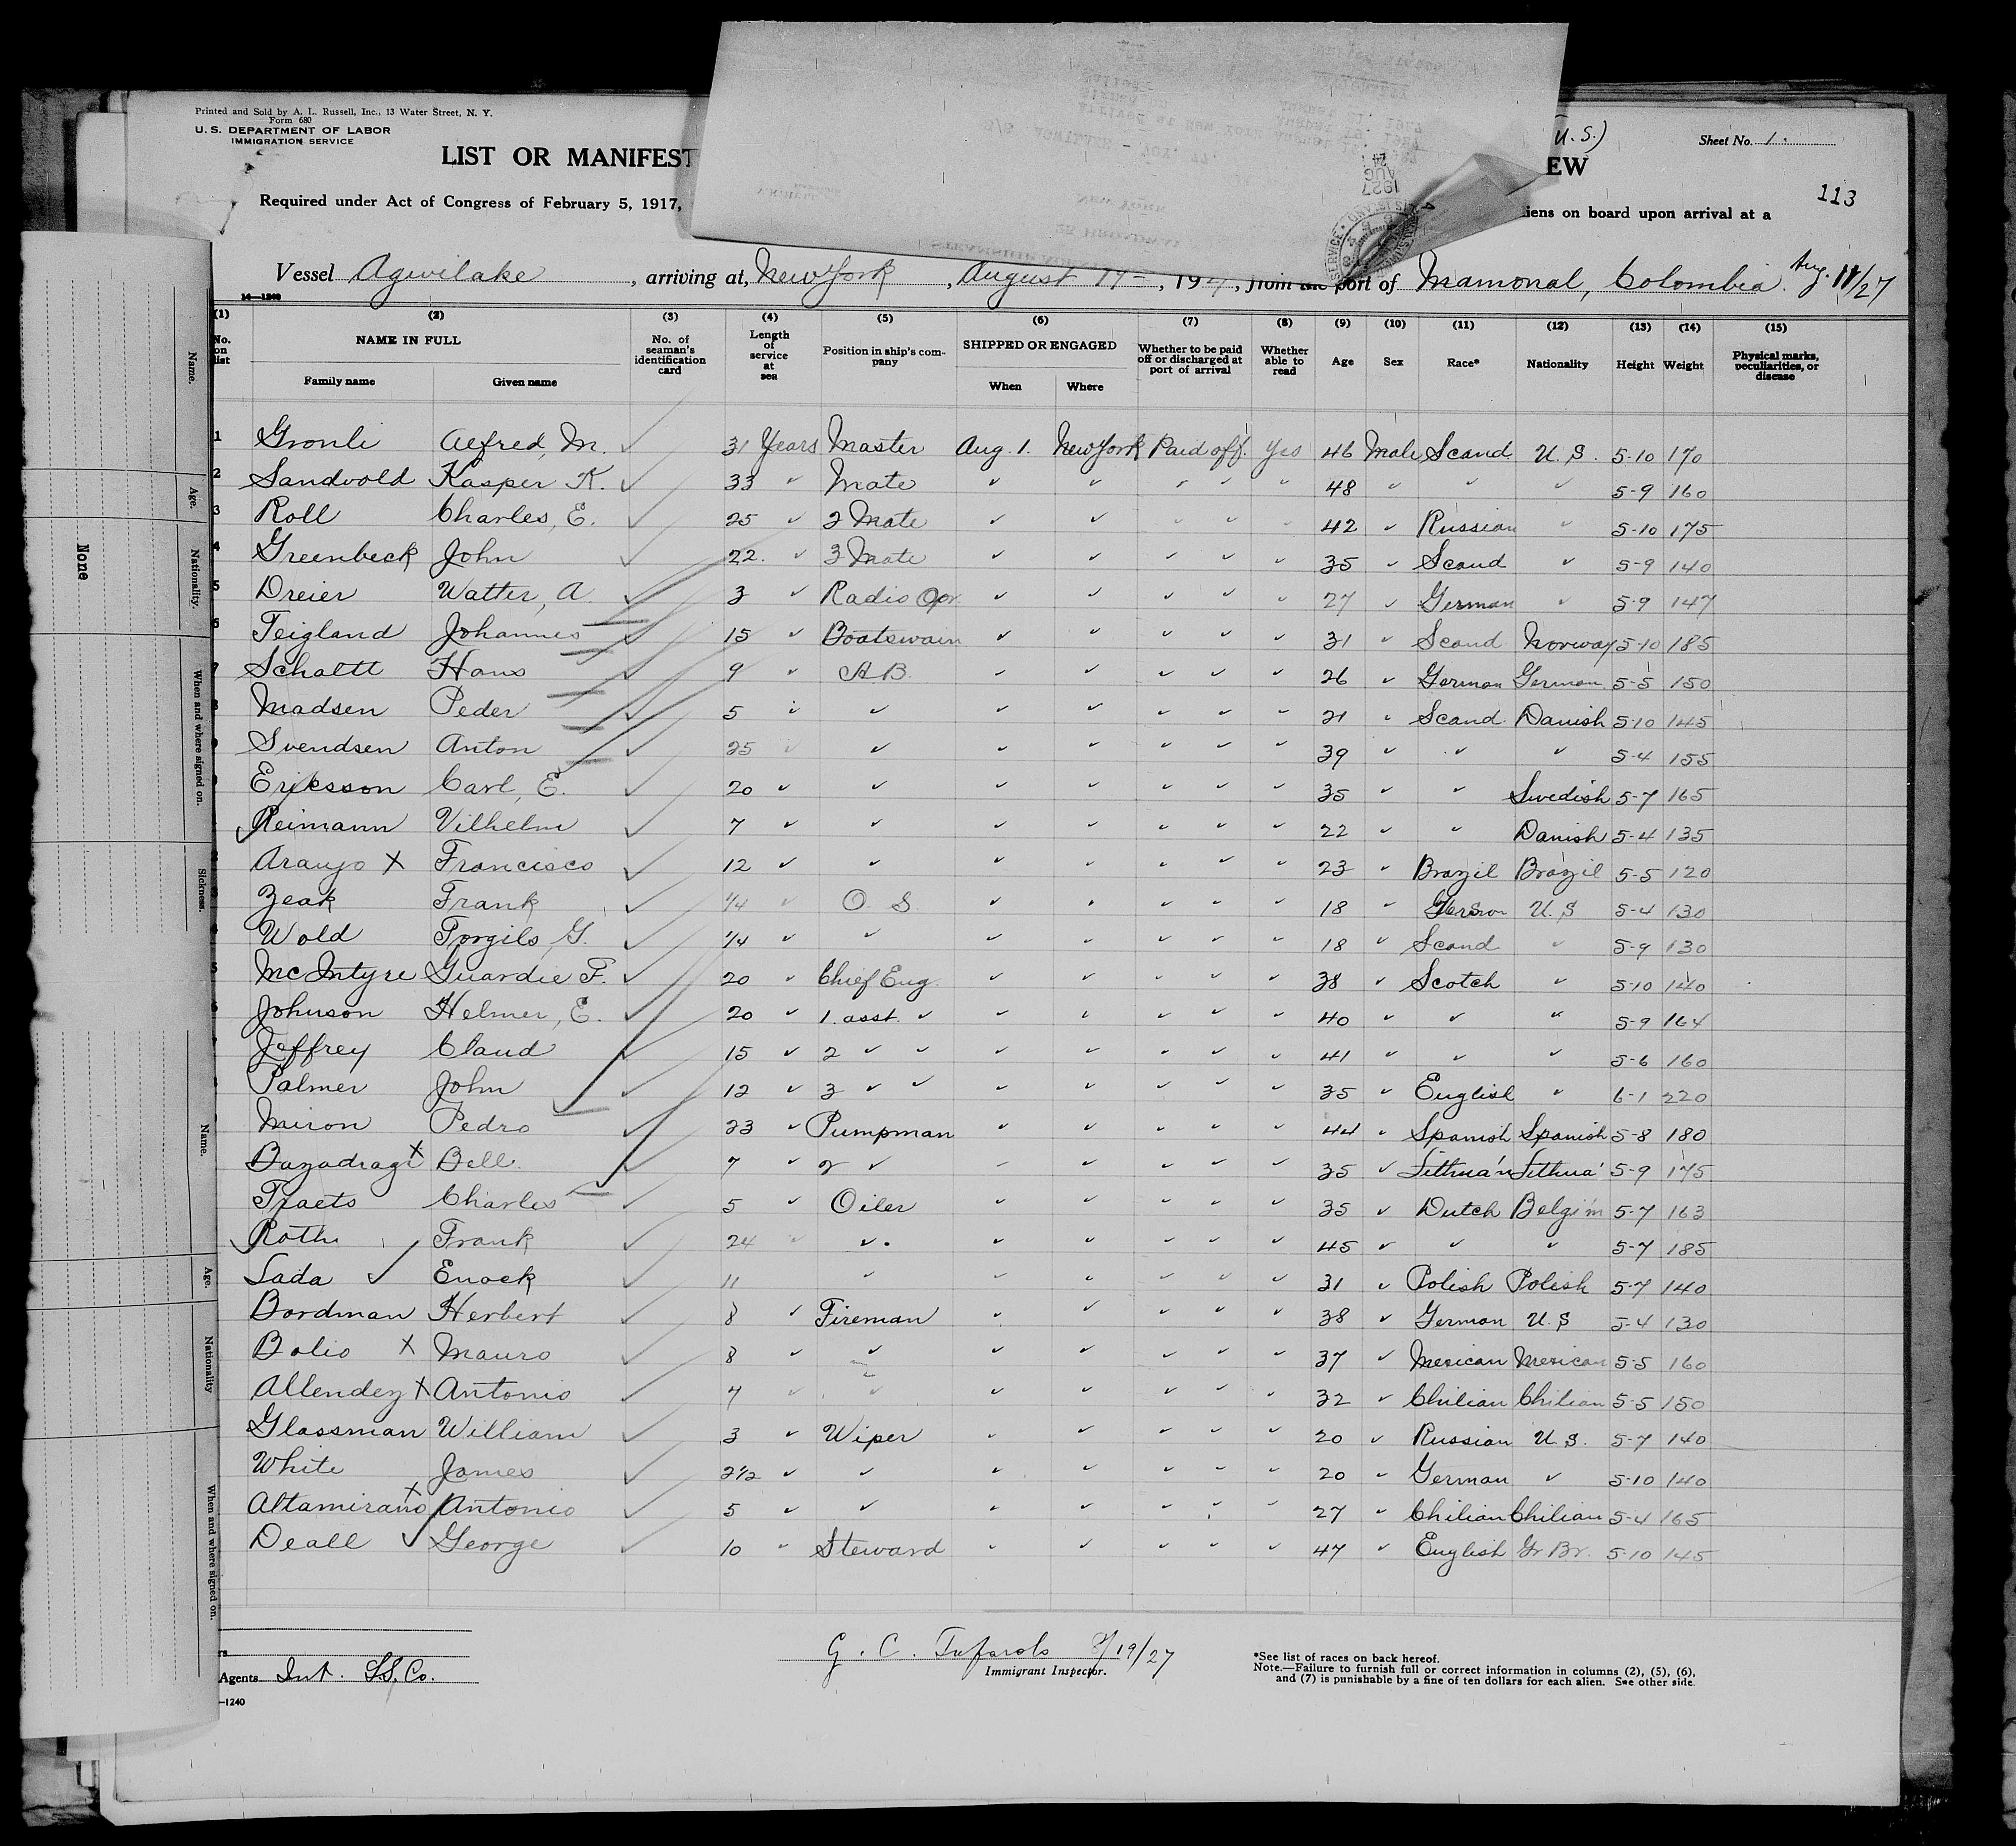 Printed and Sold by A. L. Russell, Inc., 13 Water Street, N. Y.
Form 680
U. S. DEPARTMENT OF LABOR
IMMIGRATION SERVICE
LIST OR MANIFEST
(U.S.)
EW
Sheet No. 1.
113
Required under Act of Congress of February 5, 1917,
liens on board upon arrival at a
Vessel Agwilake, arriving at, New York, August 17, 1927, from the port of Mamonal, Colombia. Aug. 11/27
14—1240
(1) (2) (3) (4) (5) (6) (7) (8) (9) (10) (11) (12) (13) (14) (15)
No. on list NAME IN FULL Family name Given name No. of seaman's identification card Length of service at sea Position in ship's company SHIPPED OR ENGAGED When Where Whether to be paid off or discharged at port of arrival Whether able to read Age Sex Race* Nationality Height Weight Physical marks, peculiarities, or disease
1 Gronli Alfred, M. ✓ 31 Years Master Aug. 1. New York Paid off. Yes 46 Male Scand. U. S. 5-10 170
2 Sandvold Kasper K. ✓ 33 " Mate " " " " " 48 " " " 5-9 160
3 Roll Charles, E. ✓ 25 " 2 Mate " " " " " 42 " Russian " 5-10 175
4 Greenbeck John ✓ 22. " 3 Mate " " " " " 35 " Scand " 5-9 140
5 Dreier Walter, A. ✓ 3 " Radio Opr. " " " " " 27 " German " 5-9 147
6 Teigland Johannes ✓ 15 " Boatswain " " " " " 31 " Scand Norway 5-10 185
7 Schaltt Hans 9 " A.B. " " " " " 26 " German German 5-5 150
8 Madsen Peder ✓ 5 " " " " " " " 21 " Scand. Danish 5-10 145
9 Svendsen Anton ✓ 25 " " " " " " " 39 " " " 5-4 155
Eriksson Carl, E. ✓ 20 " " " " " " " 35 " " Swedish 5-7 165
✓ Reimann Vilhelm ✓ 7 " " " " " " " 22 " " Danish 5-4 135
Araujo X Francisco ✓ 12 " " " " " " " 23 " Brazil Brazil 5-5 120
Zeak Frank ✓ 1/4 " O. S. " " " " " 18 " German U. S 5-4 130
Wold Torgils, G. ✓ 1/4 " " " " " " " 18 " Scand " 5-9 130
McIntyre Guardie F. ✓ 20 " Chief Eng. " " " " " 38 " Scotch " 5-10 140
Johnson Helmer, E. ✓ 20 " 1. asst. " " " " " " 40 " " " 5-9 164
Jeffrey Claud ✓ 15 " 2 " " " " " " " 41 " " " 5-6 160
Palmer John ✓ 12 " 3 " " " " " " " 35 " English " 6-1 220
Miron Pedro ✓ 23 " Pumpman " " " " " 44 " Spanish Spanish 5-8 180
Bazadragi X Bell. ✓ 7 " 2 " " " " " " 35 " Lithua'n Lithua' 5-9 175
Traets Charles ✓ 5 " Oiler " " " " " 35 " Dutch Belgi'm 5-7 163
✓ Roth Frank ✓ 24 " " " " " " " 45 " " " 5-7 185
Lada ✓ Enock ✓ 11 " " " " " " 31 " Polish Polish 5-7 140
Bordman Herbert ✓ 8 " Fireman " " " " " 38 " German U. S 5-4 130
Bolio X Mauro ✓ 8 " " " " " " " 37 " Mexican Mexican 5-5 160
Allendez X Antonio ✓ 4 " " " " " " " 32 " Chilian Chilian 5-5 150
Glassman William ✓ 3 " Wiper " " " " " 20 " Russian U. S. 5-7 140
White James ✓ 2 1/2 " " " " " " " 20 " German " 5-10 140
Altamirano X Antonio ✓ 5 " " " " " " " 27 " Chilian Chilian 5-4 165
Deall ✓ George ✓ 10 " Steward " " " " " 47 " English Gr Br. 5-10 145
Agents Int. S.S. Co.
—1240
8/19/27
Immigrant Inspector.
*See list of races on back hereof.
Note.—Failure to furnish full or correct information in columns (2), (5), (6),
and (7) is punishable by a fine of ten dollars for each alien. See other side.
Name.
Age.
Nationality.
When and where signed on.
Sickness.
None
Name.
Age.
Nationality
When and where signed on.
AUG 24 1927